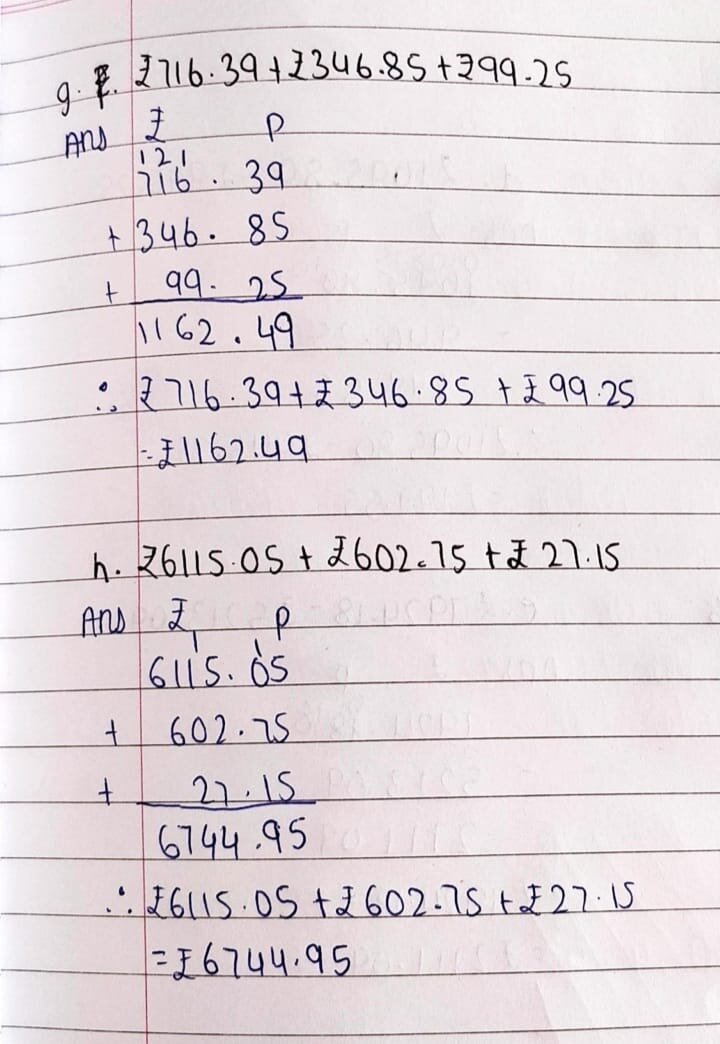 g. ₹716.39+₹346.85+₹99.25
Ans ₹ p
1 2 1
716. 39
+ 346. 85
+ 99. 25
1162.49
∴ ₹716.39+₹346.85 +₹99.25
=₹1162.49
h. ₹6115.05 + ₹602.75 +₹27.15
Ans ₹ p
1 1
6115.05
+ 602.75
+ 27.15
6744.95
∴ ₹6115.05 +₹602.75 +₹27.15
=₹6744.95